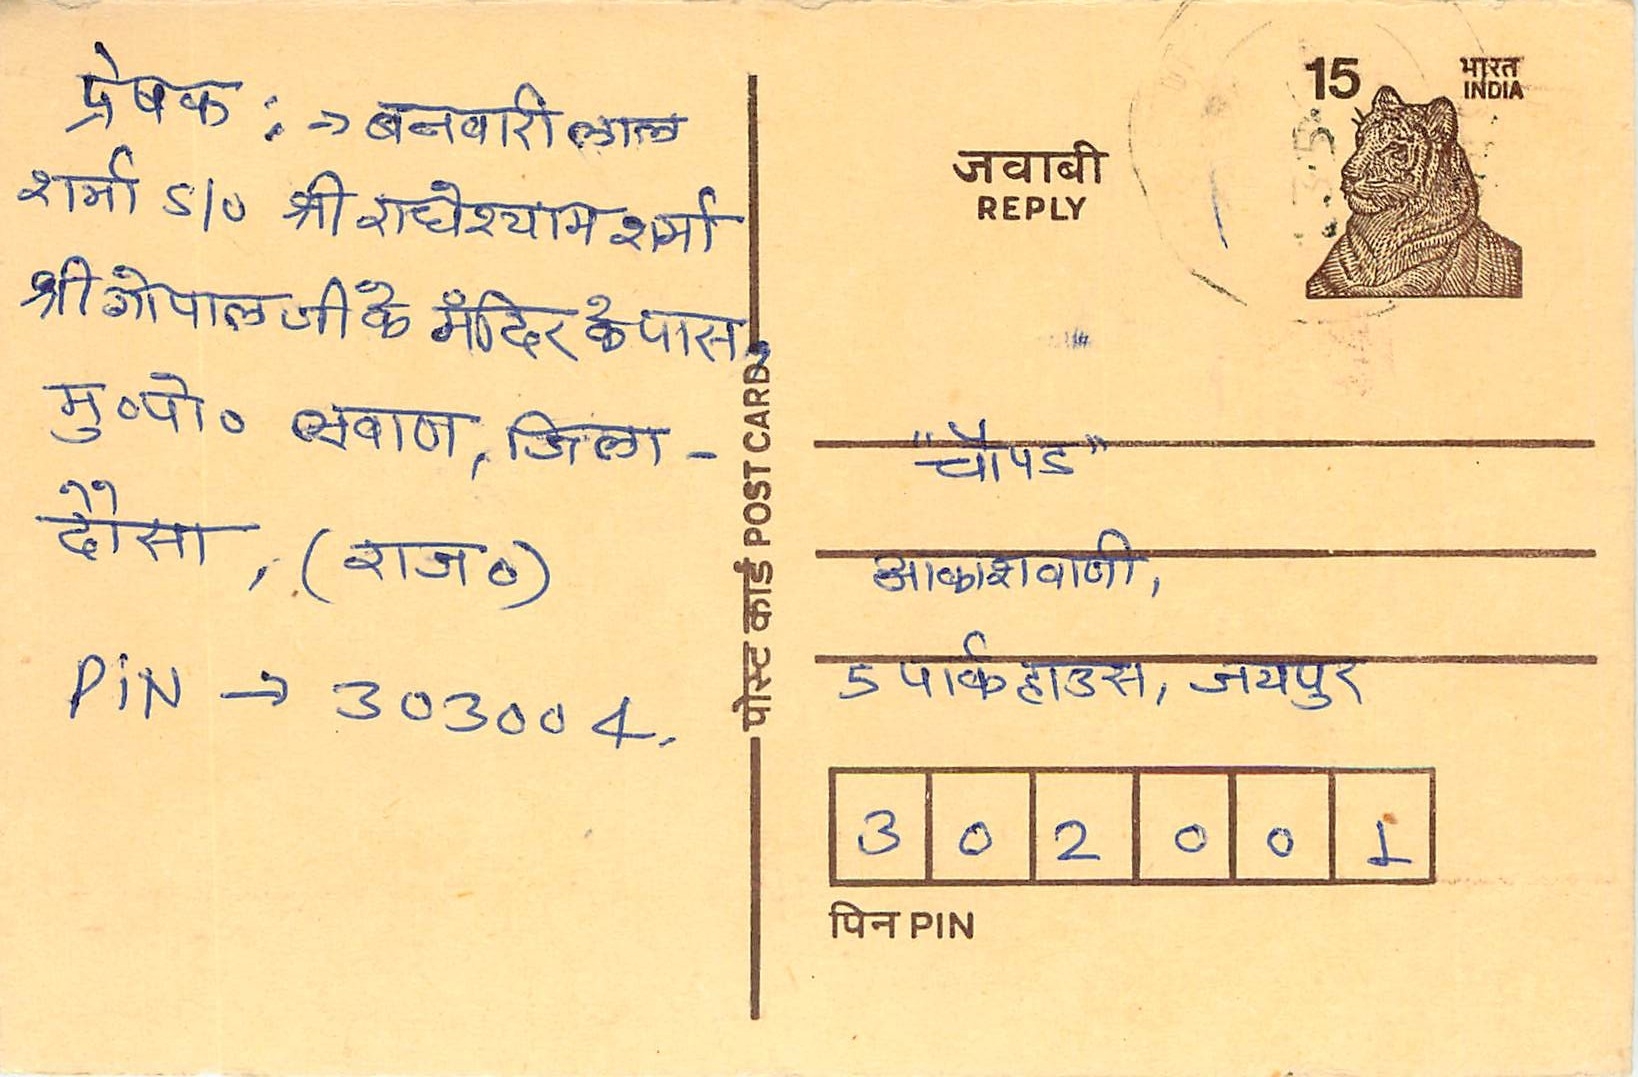 प्रेषक :→ बनवारी लाल
शर्मा S/o श्री राधेश्याम शर्मा
श्री गोपाल जी के मंदिर के पास,
मु०पो० लवाण, जिला -
दौसा, (राज०)
PiN → 303004.
पोस्ट कार्ड POST CARD
15 भारत
INDIA
जवाबी
REPLY
"चौपड"
आकाशवाणी,
5 पार्क हाउस, जयपुर
3 0 2 0 0 1
पिन PIN